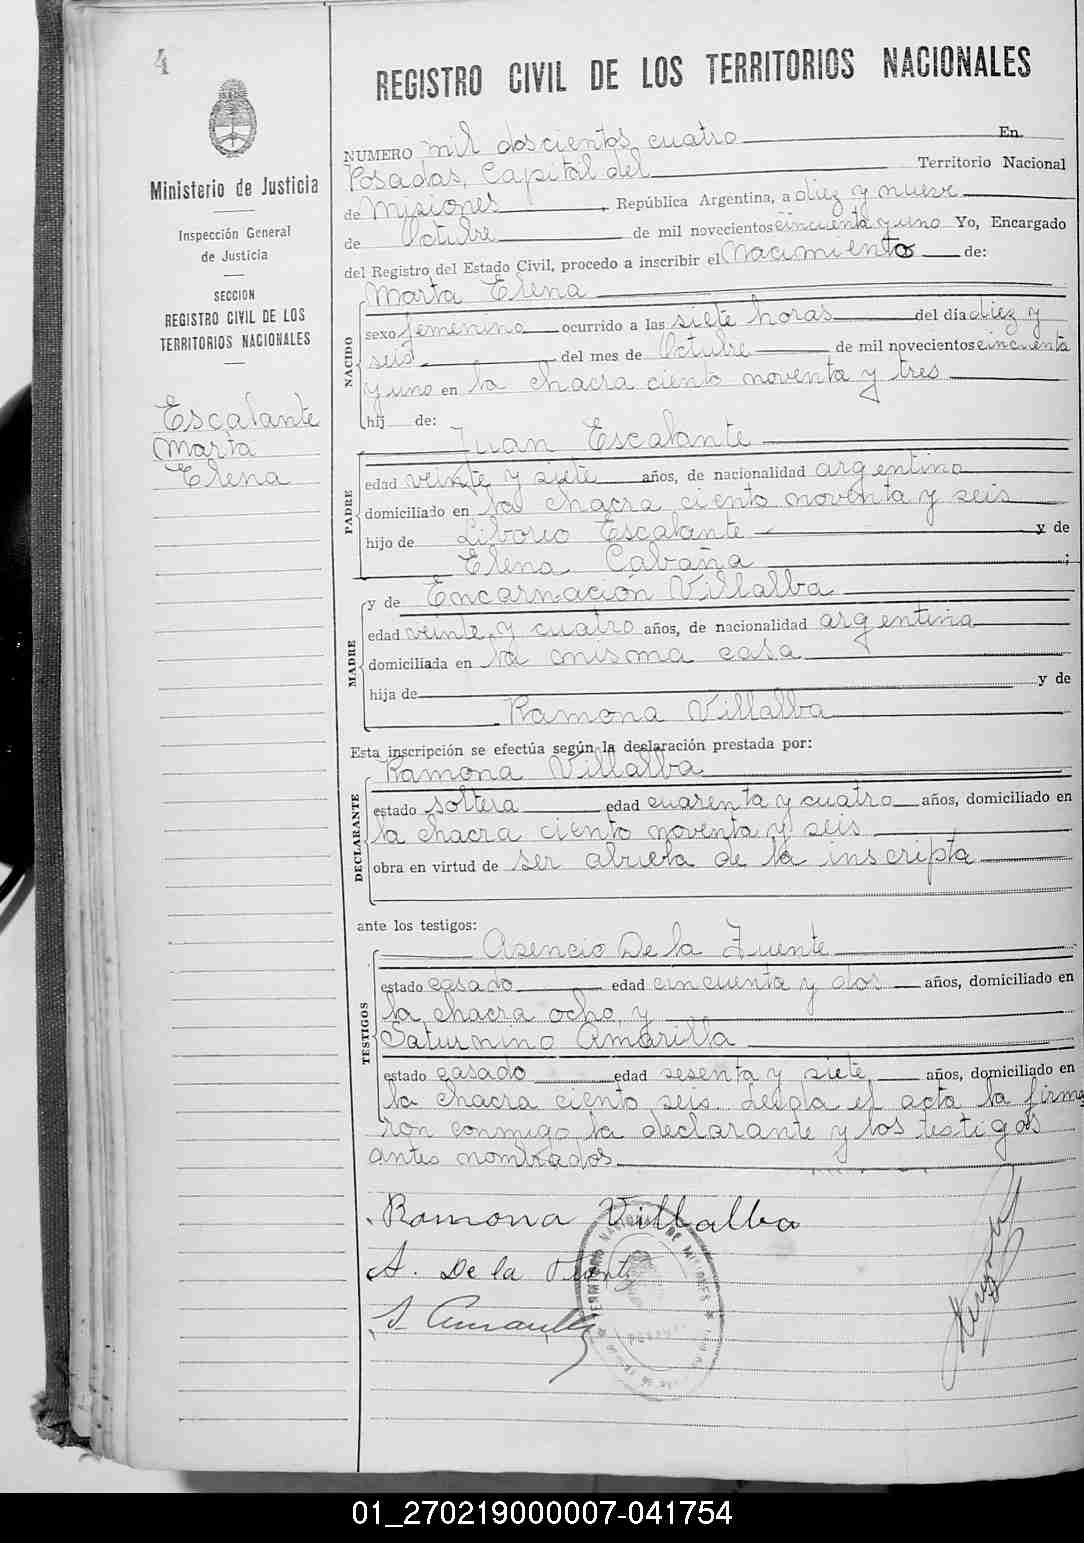 4
Ministerio de Justicia
Inspección General
de Justicia
SECCION
REGISTRO CIVIL DE LOS
TERRITORIOS NACIONALES
Escalante
Marta
Elena
REGISTRO CIVIL DE LOS TERRITORIOS NACIONALES
NUMERO mil doscientos cuatro En
Posadas, Capital del Territorio Nacional
de Misiones, República Argentina, a diez y nueve
de Octubre de mil novecientos cincuenta y uno Yo, Encargado
del Registro del Estado Civil, procedo a inscribir el Nacimiento de:
NACIDO
Marta Elena
sexo femenino ocurrido a las siete horas del día diez y
seis del mes de Octubre de mil novecientos cincuenta
y uno en la chacra ciento noventa y tres
hij de:
PADRE
Juan Escalante
edad veinte y siete años, de nacionalidad argentino
domiciliado en la chacra ciento noventa y seis
hijo de Liborio Escalante y de
Elena Cabaña ;
MADRE
y de Encarnación Villalba
edad veinte y cuatro años, de nacionalidad argentina
domiciliada en la misma casa
hija de y de
Ramona Villalba
Esta inscripción se efectúa según la declaración prestada por:
DECLARANTE
Ramona Villalba
estado soltera edad cuarenta y cuatro años, domiciliado en
la chacra ciento noventa y seis
obra en virtud de ser abuela de la inscripta
ante los testigos:
TESTIGOS
Asencio De la Fuente
estado casado edad cincuenta y dos años, domiciliado en
la chacra ocho y
Saturnino Amarilla
estado casado edad sesenta y siete años, domiciliado en
la chacra ciento seis. Leída el acta la firma
ron conmigo la declarante y los testigos
antes nombrados
Ramona Villalba
A. De la Fuente
S. Amarilla
TERRITORIO NACIONAL DE MISIONES
01_270219000007-041754